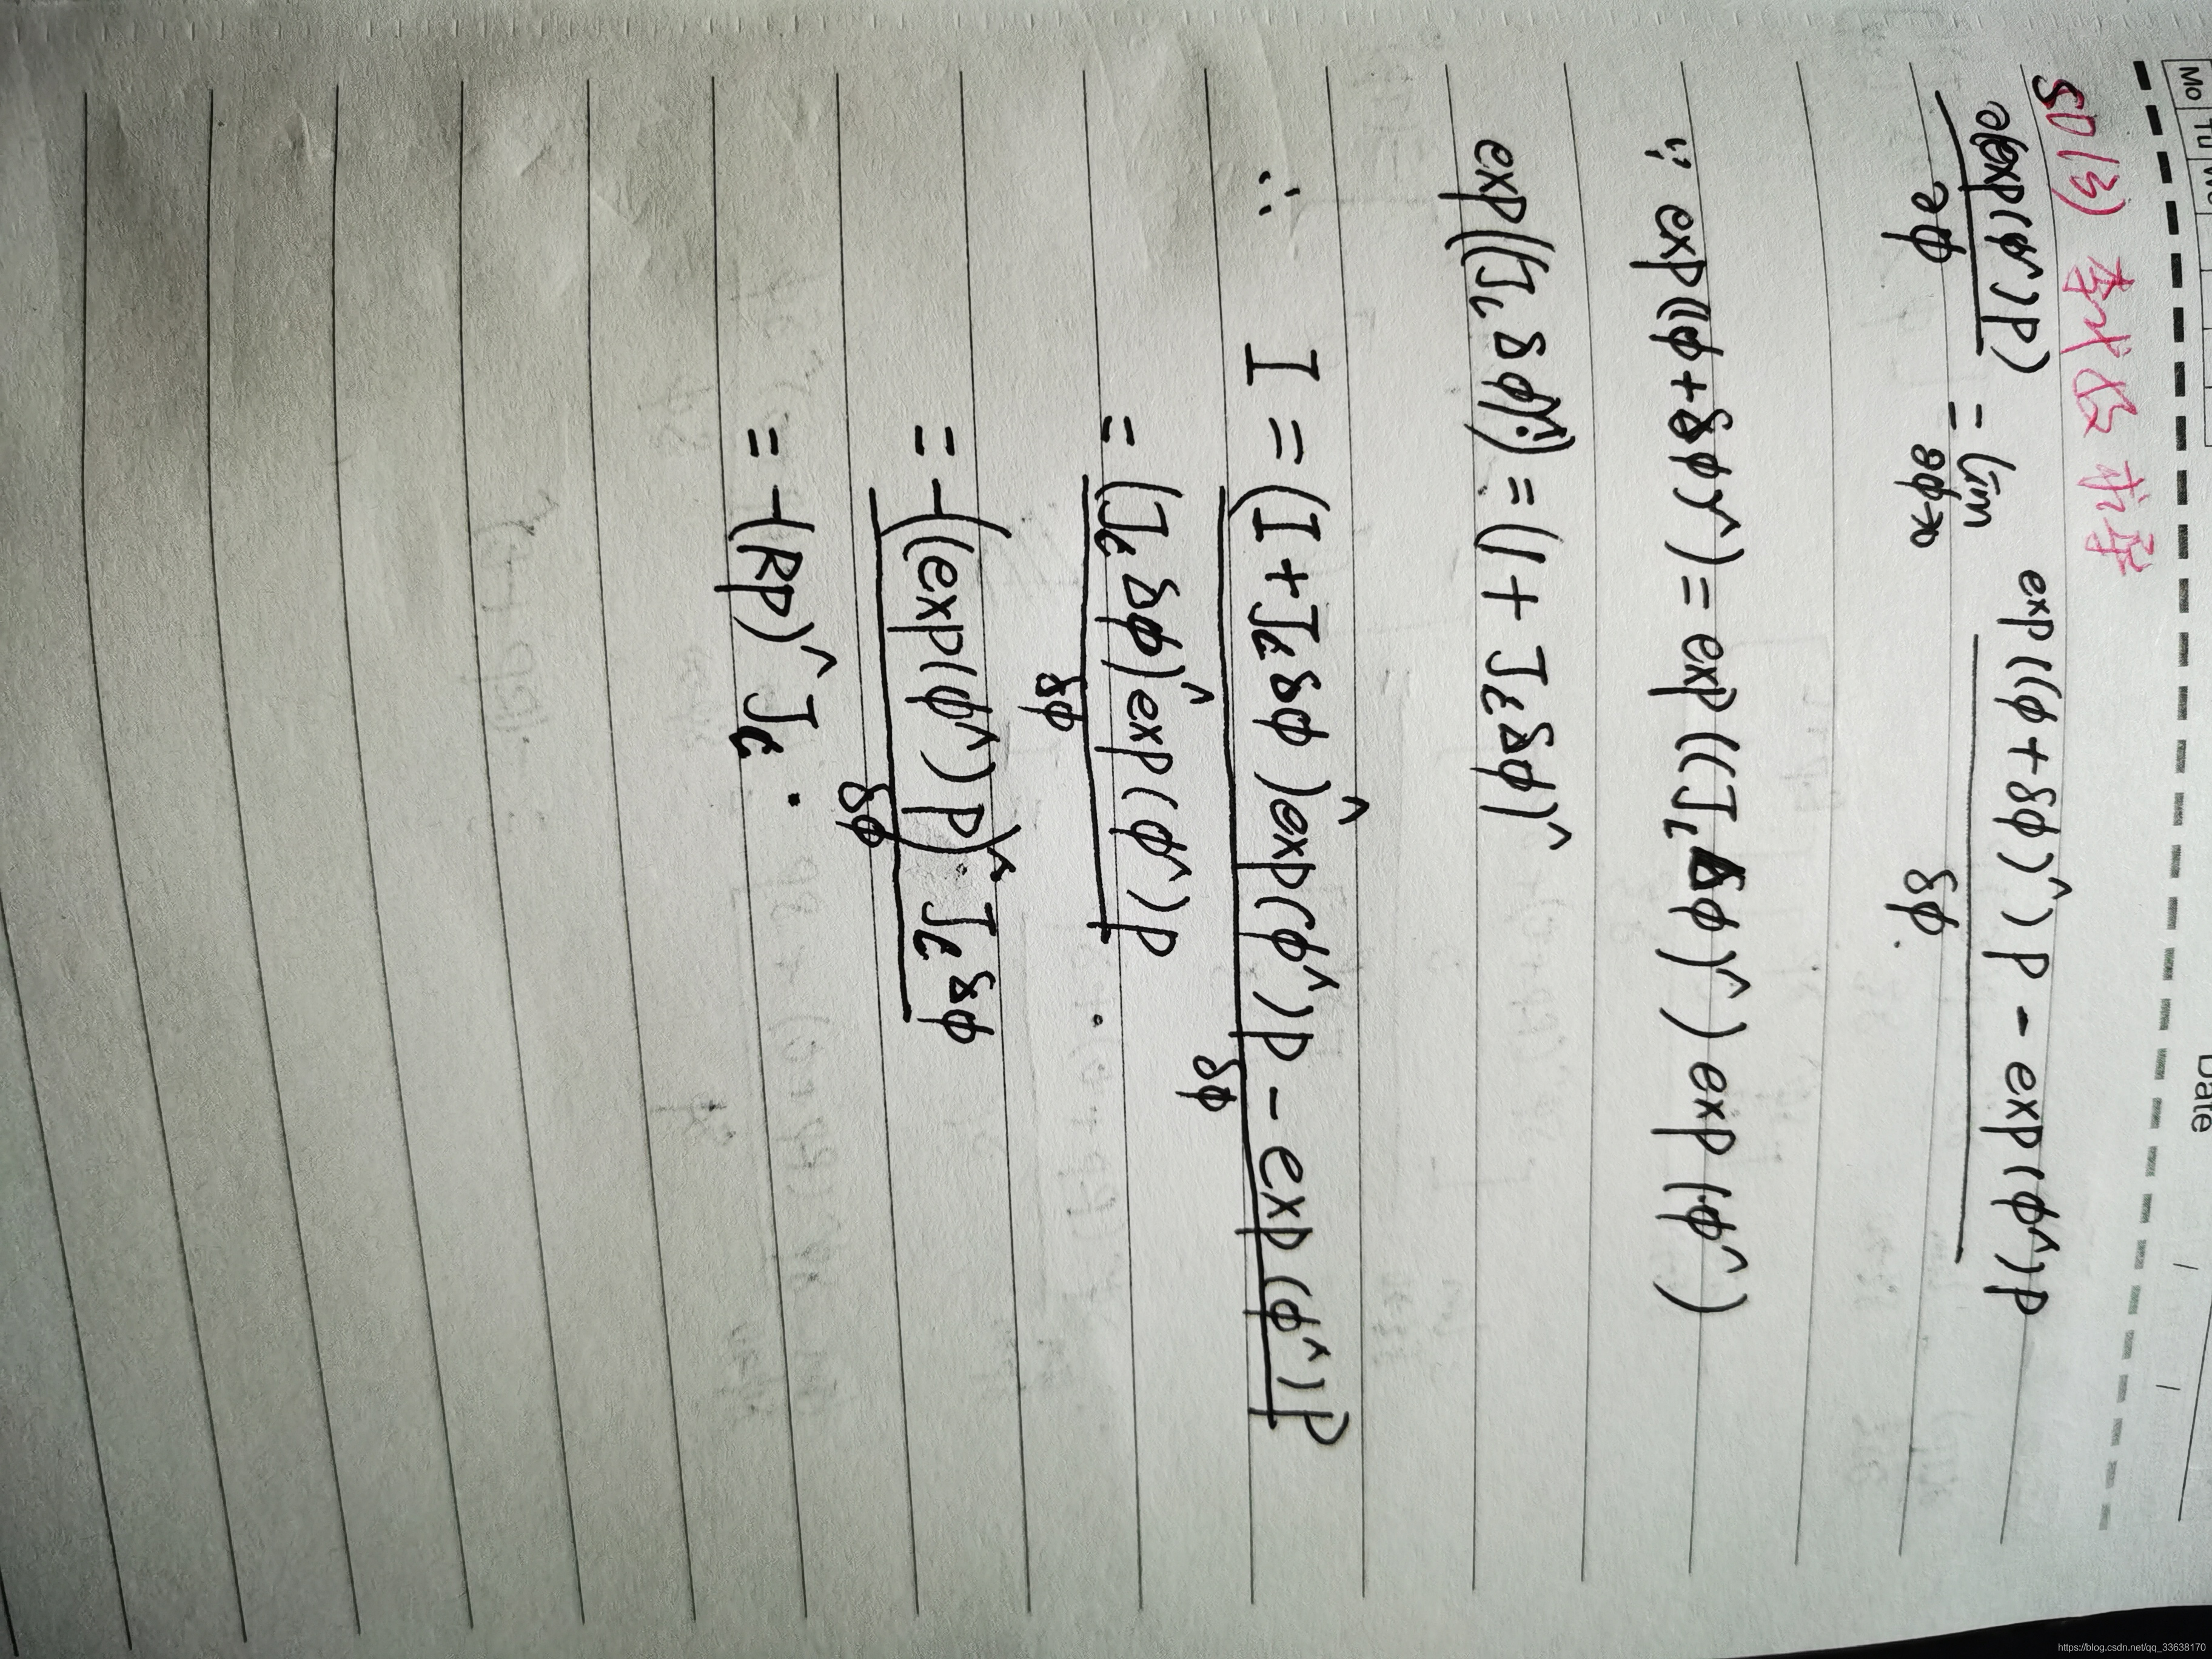 Mo Tu We
Date / /
SO(3) 李代数求导
∂(exp(φ^)p) / ∂φ = lim δφ→0 exp((φ+δφ)^)p - exp(φ^)p / δφ.
∵ exp((φ+δφ)^) = exp((J_l δφ)^) exp(φ^)
exp((J_l δφ)^) = (1 + J_l δφ)^
∴ I = (I + J_l δφ)^ exp(φ^)p - exp(φ^)p / δφ
= (J_l δφ)^ exp(φ^)p / δφ .
= -((exp(φ^)p)^ J_l δφ / δφ
= -(Rp)^ J_l .
https://blog.csdn.net/qq_33638170